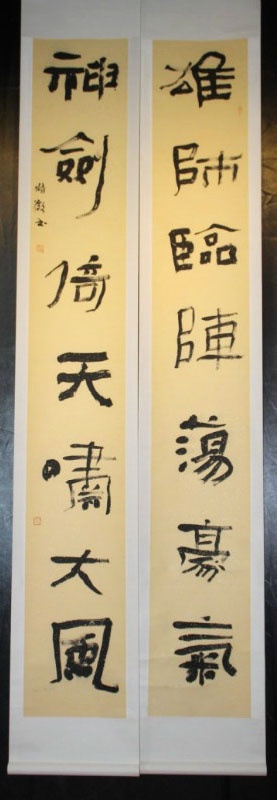 雄師臨陣蕩豪氣
神劍倚天嘯大風